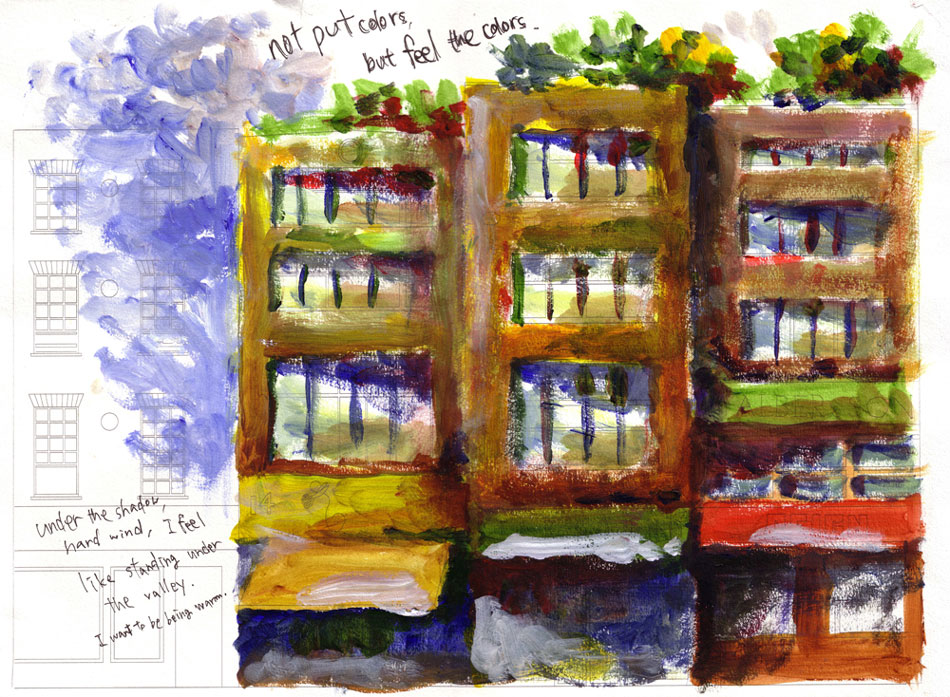 not put colors,
but feel the colors.
under the shadow,
hard wind, I feel
like standing under
the valley.
I want to be being warm.